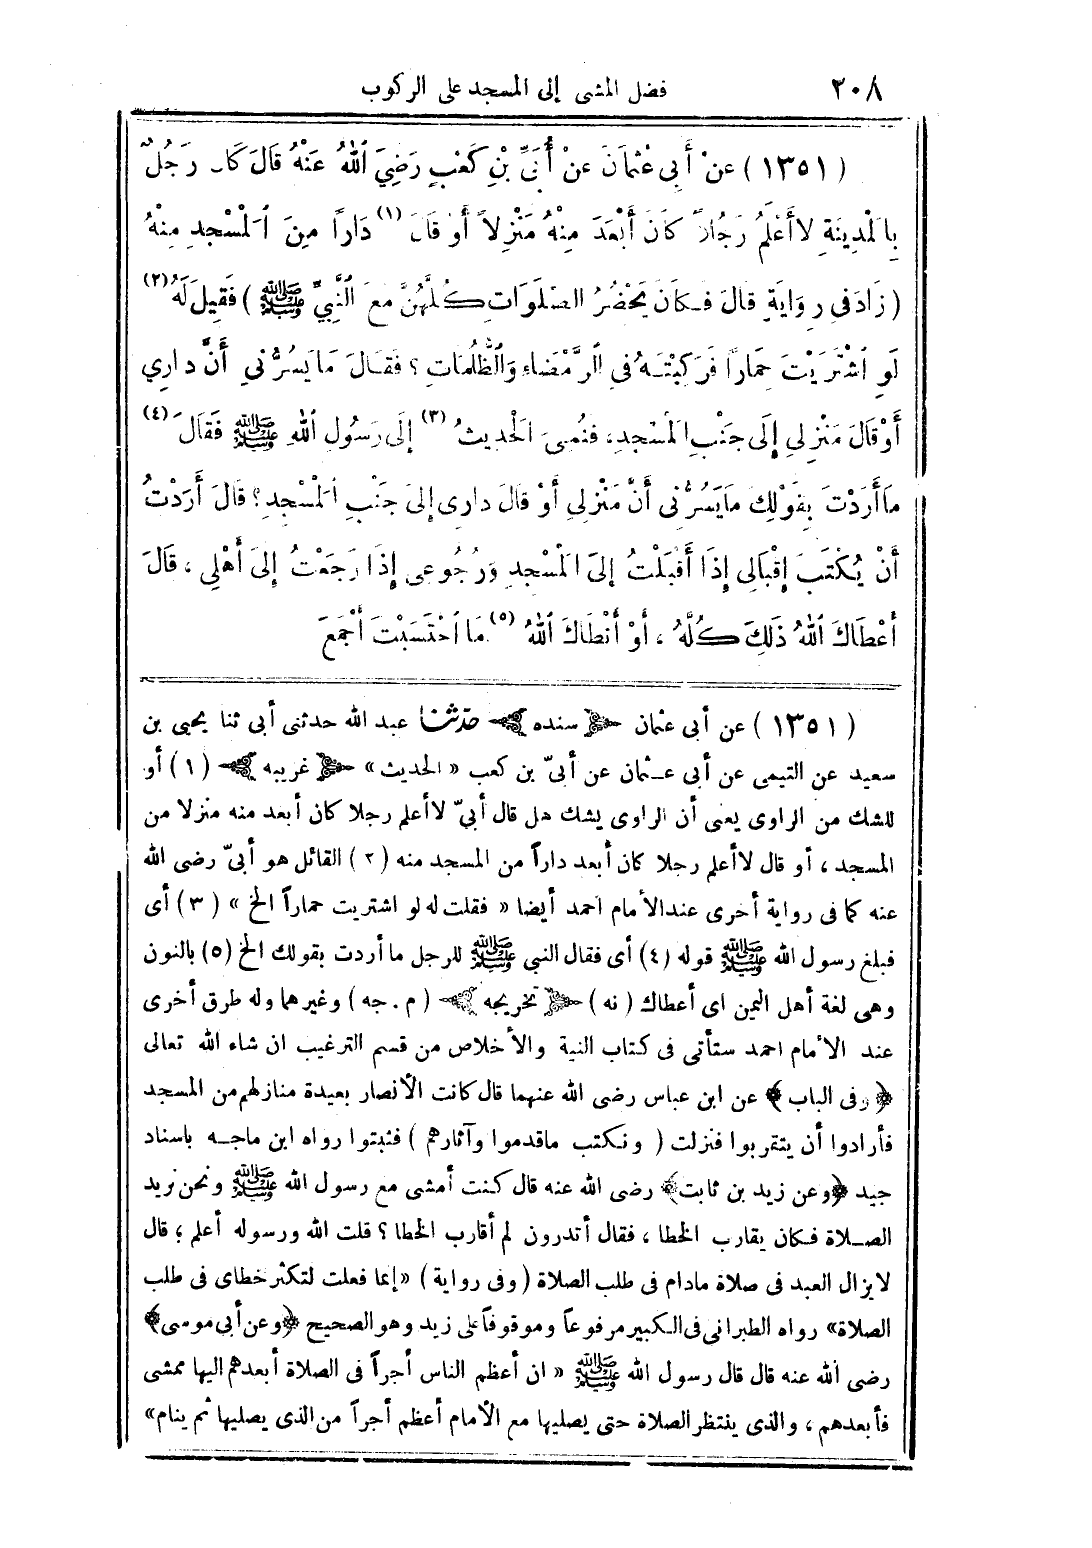 ٢٠٨ فضل المشى إلى المسجد على الركوب
(١٣٥١) عَنْ أَبِي عُثْمَانَ عَنْ أُبَيِّ بْنِ كَعْبٍ رَضِيَ اللهُ عَنْهُ قَالَ كَانَ رَجُلٌ
بِالْمَدِينَةِ لاَ أَعْلَمُ رَجُلاً كَانَ أَبْعَدَ مِنْهُ مَنْزِلاً أَوْ قَالَ (١) دَاراً مِنَ الْمَسْجِدِ مِنْهُ
(زَادَ فِي رِوَايَةٍ قَالَ فَكَانَ يَحْضُرُ الصَّلَوَاتِ كُلَّهُنَّ مَعَ النَّبِيِّ ﷺ) فَقِيلَ لَهُ (٢)
لَوِ اشْتَرَيْتَ حِمَاراً فَرَكِبْتَهُ فِي الرَّمْضَاءِ وَالظُّلُمَاتِ؟ فَقَالَ مَا يَسُرُّنِي أَنَّ دَارِي
أَوْ قَالَ مَنْزِلِي إِلَى جَنْبِ الْمَسْجِدِ، فَنُمِيَ الْحَدِيثُ (٣) إِلَى رَسُولِ اللهِ ﷺ فَقَالَ (٤)
مَا أَرَدْتَ بِقَوْلِكَ مَا يَسُرُّنِي أَنَّ مَنْزِلِي أَوْ قَالَ دَارِى إِلَى جَنْبِ الْمَسْجِدِ؟ قَالَ أَرَدْتُ
أَنْ يُكْتَبَ إِقْبَالِى إِذَا أَقْبَلْتُ إِلَى الْمَسْجِدِ وَرُجُوعِى إِذَا رَجَعْتُ إِلَى أَهْلِي، قَالَ
أَعْطَاكَ اللهُ ذَلِكَ كُلَّهُ، أَوْ أَنْطَاكَ اللهُ (٥) مَا احْتَسَبْتَ أَجْمَعَ
(١٣٥١) عن أبى عثمان ﴿سنده﴾ حدّثنا عبد الله حدثنى أبى ثنا يحيى بن
سعيد عن التيمى عن أبى عثمان عن أبىّ بن كعب «الحديث» ﴿غريبه﴾ (١) أو
للشك من الراوى يعنى أن الراوى يشك هل قال أبىّ لا أعلم رجلا كان أبعد منه منزلا من
المسجد، أو قال لا أعلم رجلا كان أبعد داراً من المسجد منه (٢) القائل هو أبىّ رضى الله
عنه كما فى رواية أخرى عند الأمام احمد أيضا «فقلت له لو اشتريت حماراً الخ» (٣) أى
فبلغ رسول الله ﷺ قوله (٤) أى فقال النبى ﷺ للرجل ما أردت بقولك الخ (٥) بالنون
وهى لغة أهل اليمن اى أعطاك (نه) ﴿تخريجه﴾ (م.جه) وغيرهما وله طرق أخرى
عند الأمام احمد ستأتى فى كتاب النية والأخلاص من قسم الترغيب ان شاء الله تعالى
﴿وفى الباب﴾ عن ابن عباس رضى الله عنهما قال كانت الأنصار بعيدة منازلهم من المسجد
فأرادوا أن يتقربوا فنزلت (ونكتب ماقدموا وآثارهم) فثبتوا رواه ابن ماجه باسناد
جيد ﴿وعن زيد بن ثابت﴾ رضى الله عنه قال كنت أمشى مع رسول الله ﷺ ونحن نريد
الصلاة فكان يقارب الخطا، فقال أتدرون لم أقارب الخطا؟ قلت الله ورسوله أعلم؛ قال
لا يزال العبد فى صلاة مادام فى طلب الصلاة (وفى رواية) «إنما فعلت لتكثر خطاى فى طلب
الصلاة» رواه الطبرانى فى الكبير مرفوعاً وموقوفاً على زيد وهو الصحيح ﴿وعن أبى موسى﴾
رضى الله عنه قال قال رسول الله ﷺ «ان أعظم الناس أجراً فى الصلاة أبعدهم اليها ممشى
فأبعدهم، والذى ينتظر الصلاة حتى يصليها مع الأمام أعظم أجراً من الذى يصليها ثم ينام»